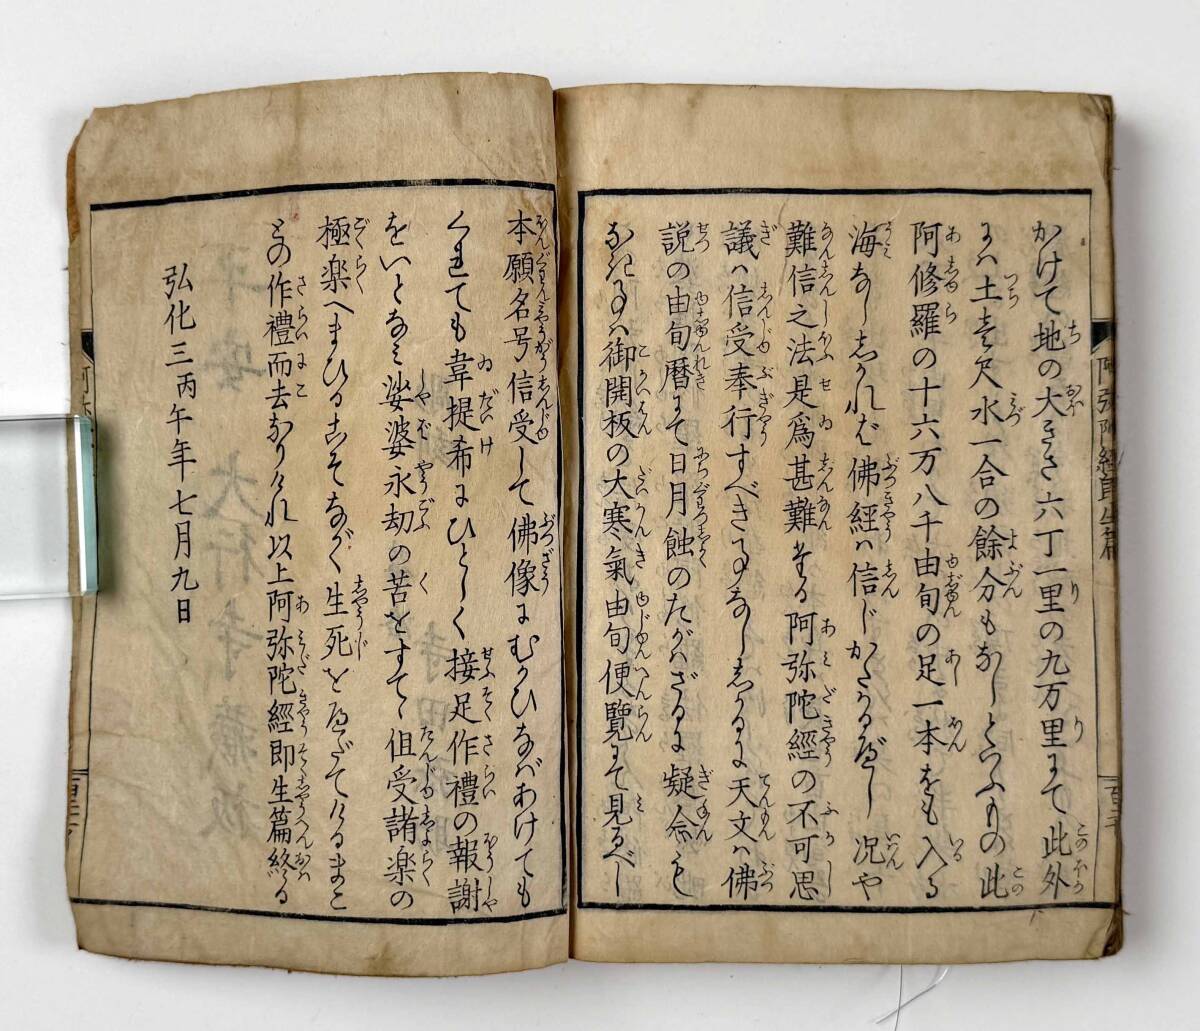 かけて地の大きさ六丁一里の九万里にて此外
にハ土壱尺水一合の餘分もなしといふもの此
阿修羅の十六万八千由旬の足一本をも入る
海なししかれば佛經ハ信じがたかるべし況や
難信之法是爲甚難なる阿弥陀經の不可思
議ハ信受奉行すべき事なししかるに天文ハ佛
説の由旬暦にて日月蝕のたがハざるに疑念も
なき事ハ御開板の大寒氣由旬便覧にて見るべし
阿弥陀經即生篇
本願名号信受して佛像にむかひなバあけても
くれても韋提希にひとしく接足作禮の報謝
をいとなミ娑婆永劫の苦をすてゝ但受諸楽の
極楽へまひるこそながく生死をへだてけるまこ
との作禮而去なりけれ以上阿弥陀經即生篇終る
弘化三丙午年七月九日